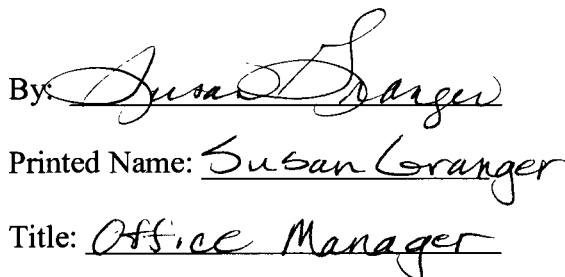 By: Susan Granger
Printed Name: Susan Granger
Title: Office Manager